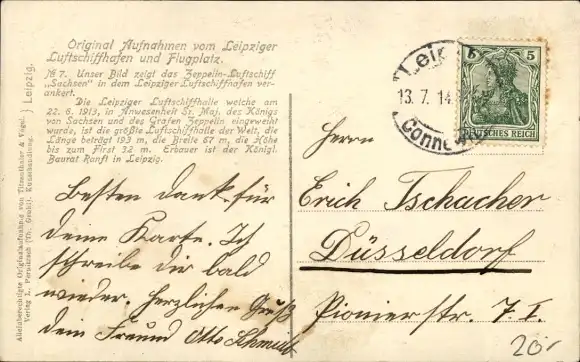 Original Aufnahmen vom Leipziger
Luftschiffhafen und Flugplatz.
№ 7. Unser Bild zeigt das Zeppelin-Luftschiff
„Sachsen" in dem Leipziger Luftschiffhafen ver-
ankert.
Die Leipziger Luftschiffhalle welche am
22. 6. 1913, in Anwesenheit Sr. Maj. des Königs
von Sachsen und des Grafen Zeppelin eingeweiht
wurde, ist die größte Luftschiffhalle der Welt, die
Länge beträgt 193 m, die Breite 67 m, die Höhe
bis zum First 32 m. Erbauer ist der Königl.
Baurat Ranft in Leipzig.
Alleinberechtigte Originalaufnahme von &
Verlag L. Kunsthandlung.
} Leipzig.
Besten Dank für
deine Karte. Ich
schreibe dir bald
wieder. Herzlichen Gruß
dein Freund Otto Schmidt
Leip
13. 7. 14
Conne
5 5
DEUTSCHES REICH
Herrn
Erich Tschacher
Düsseldorf
Pionierstr. 7. I.
20.-